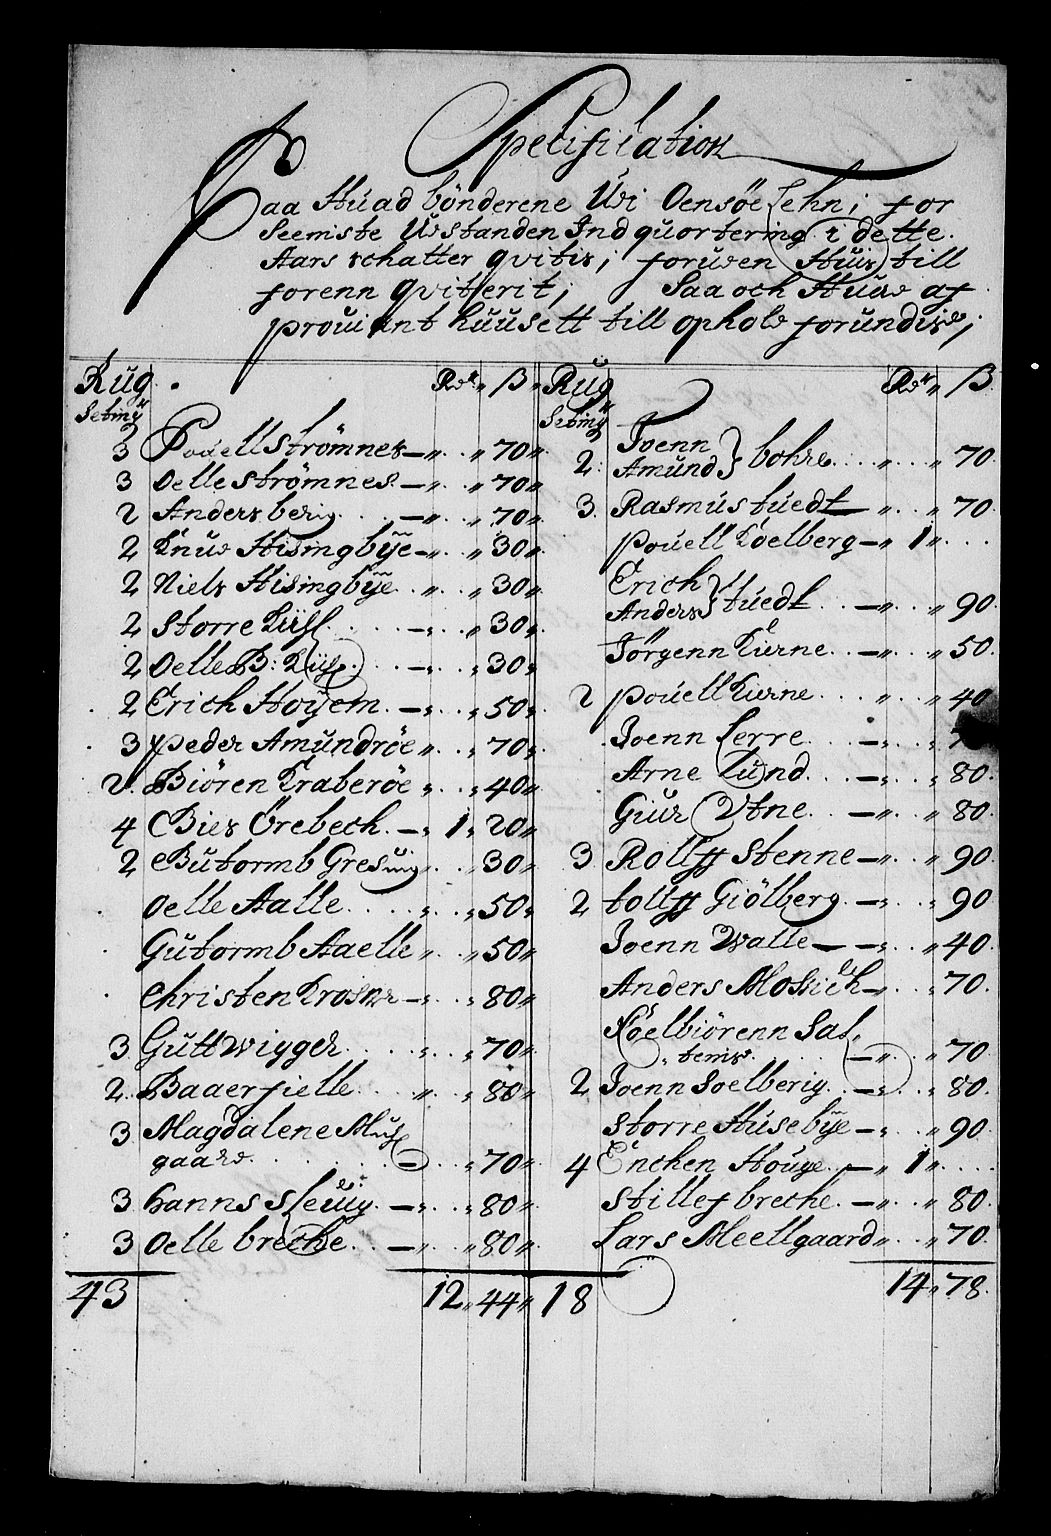 Specification
Paa Huad bönderene Udi Oensöe Lehn; for
Seemiste Udstanden Indquortering i dette
Aars schatter qvitis; foruden Huis till
forenn qvitterit; Saa och Huad af
prouiant huusett till ophold forundis;
Rug Rdr ß
Setingr
3 Pouell Strömnes 70
3 Oelle Strömnes 70
2 Anders berig 70
2 Knud Hisingbÿe 30
2 Niels Hisingbÿe 30
2 Storre 30
2 Oelle B: 30
2 Erich Hoÿem 50
3 Peder Amundröe 70
2 Biören Kraberöe 40
4 Örebech 1 20
2 Gutormb Gresuing 30
Oelle Aalle 50
Gutormb Aaelle 50
Christen 80
3 Gutt 70
2 Baaerfielle 80
3 Magdalene Mus
gaard 70
3 Hanns Sleuig 80
3 Oelle breche 80
43 12 44
Rug Rdr ß
Setingr
2 Joenn
Amund bohre 70
3 Rasmus tuedt 70
Pouell Köelberg 1
Erich
Anders tuedt 90
Jörgenn Kierne 50
2 Pouell Kierne 40
Joenn Lerre
Arne Lund 80
Utne 80
3 Rollff Stenne 90
2 tollff Giölberg 90
Joenn Walle 40
Anders 70
Köelbiörenn Sal
tenis 70
2 Joenn Soelberig 80
Storre Husebÿe 90
4 Enchen Houge 1
Stillef breche 80
Lars Meellgaard 70
18 14 78